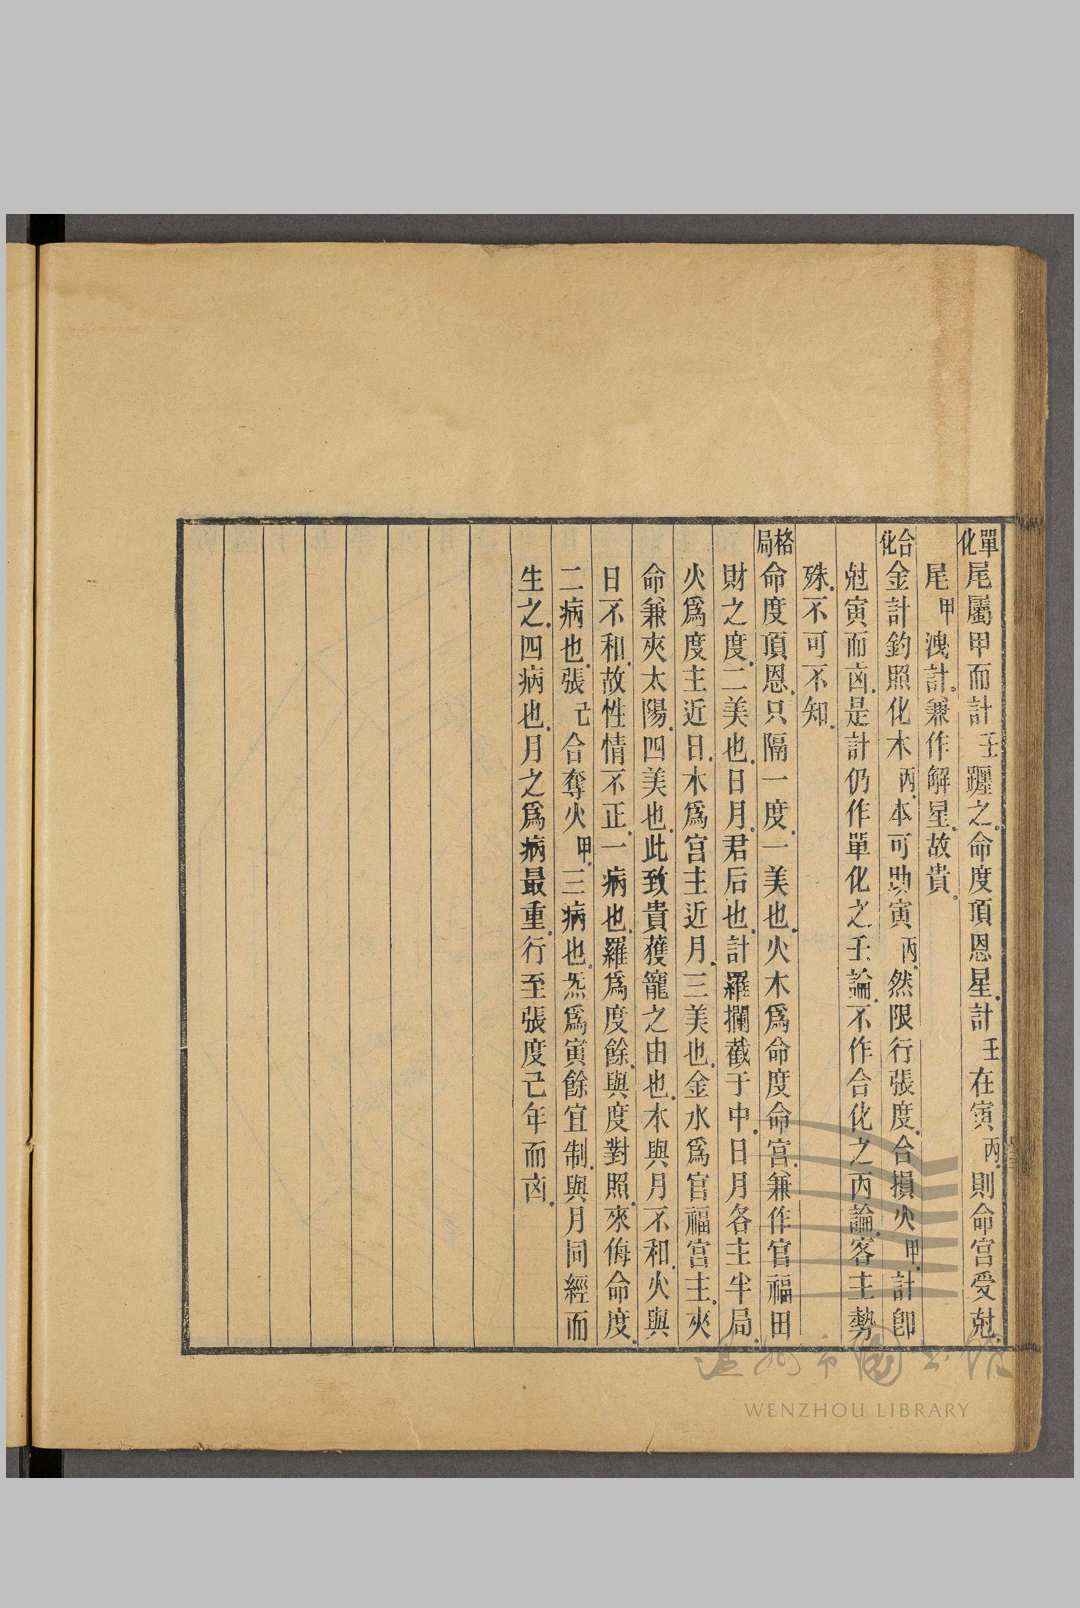 單化 尾屬甲而計壬躔之命度頂恩星計壬在寅丙則命宮受尅
尾甲洩計兼作解星故貴
合化 金計鈞照化木丙本可助寅丙然限行張度合損火甲計卽
尅寅而凶是計仍作單化之壬論不作合化之丙論客主勢
殊不可不知
格局 命度頂恩只隔一度一美也火木爲命度命宮兼作官福田
財之度二美也日月君后也計羅攔截于中日月各主半局
火爲度主近日木爲宮主近月三美也金水爲官福宮主夾
命兼夾太陽四美也此致貴獲寵之由也木與月不和火與
日不和故性情不正一病也羅爲度餘與度對照來侮命度
二病也張己合奪火甲三病也炁爲寅餘宜制與月同經而
生之四病也月之爲病最重行至張度己年而凶
WENZHOU LIBRARY